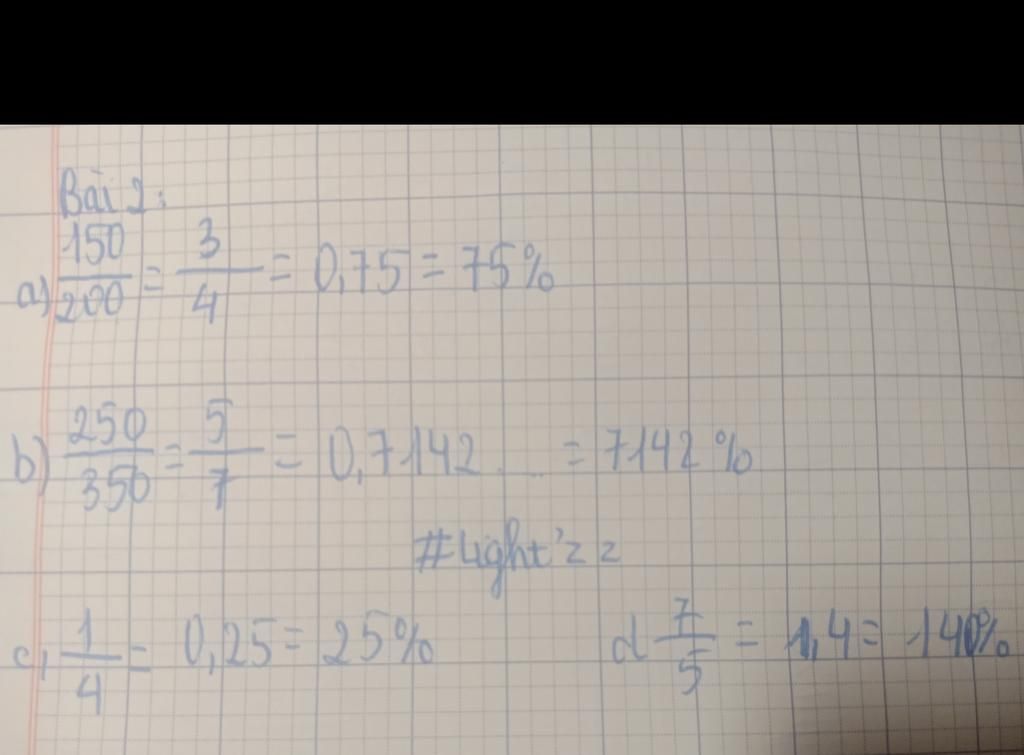 Bài 2:
a) 150/200 = 3/4 = 0,75 = 75%
b) 250/350 = 5/7 = 0,7142... = 7142%
#Light'zz
c, 1/4 = 0,25 = 25% d 7/5 = 1,4 = 140%